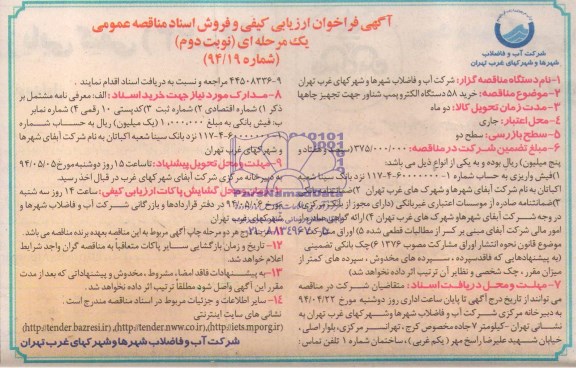 آگهی فراخوان ارزیابی کیفی و فروش اسناد مناقصه عمومی
یک مرحله ای (نوبت دوم)
(شماره ۹۴/۱۹)
شرکت آب و فاضلاب
شهرها و شهرکهای غرب تهران
۱-نام دستگاه مناقصه گزار: شرکت آب و فاضلاب شهرها و شهرکهای غرب تهران
۲-موضوع مناقصه: خرید ۵۸ دستگاه الکتروپمپ شناور جهت تجهیز چاهها
۳-مدت زمان تحویل کالا: دو ماه
۴-محل اعتبار: جاری
۵-سطح بازرسی: سطح دو
۶-مبلغ تضمین شرکت در مناقصه:
پنج میلیون) ریال بوده و به یکی از انواع ذیل می باشد:
۱)فیش واریزی به حساب شماره
اکباتان به نام شرکت آبفای شهرها و شهرک های غرب تهران
۳)ضمانتنامه صادره از موسسات اعتباری غیربانکی (دارای مجوز از بانک مرکزی)
در وجه شرکت آبفای شهرها و شهرک های غرب تهران ۴)ارائه گواهی صادره از
امور مالی شرکت آبفای مبنی بر کسر از مطالبات قطعی شده ۵) اوراق مشارکت
موضوع قانون نحوه انتشار اوراق مشارکت مصوب ۱۳۷۶ ۶)چک بانکی تضمینی
(به پیشنهادهایی که فاقد سپرده ، سپرده های مخدوش ، سپرده های کمتر از
میزان مقرر ، چک شخصی و نظایر آن ترتیب اثر داده نخواهد شد.)
۷-مهلت و محل دریافت اسناد: متقاضیان شرکت در مناقصه
می توانند از تاریخ درج آگهی تا پایان ساعت اداری روز دوشنبه مورخ ۹۴/۰۴/۲۲
به دبیرخانه مرکزی شرکت آب و فاضلاب شهرها و شهرکهای غرب تهران به
نشانی تهران -کیلومتر ۷ جاده مخصوص کرج، تهرانسر مرکزی، بلوار اصلی ،
خیابان شهید علیرضا راسخ مهر (یکم غربی) ، ساختمان شماره ۱ تلفن تماس :
۹-۴۴۵۰۸۳۳۶ مراجعه و نسبت به دریافت اسناد اقدام نمایند .
۸-مدارک مورد نیاز جهت خرید اسناد: الف: معرفی نامه مشتمل بر
ذکر ۱) شماره اقتصادی ۲) شماره ثبت ۳)کدپستی ۱۰ رقمی ۴) شماره نمابر
ب: فیش بانکی به مبلغ ۱,۰۰۰,۰۰۰ (یک میلیون) ریال به حساب شماره
نزد بانک سینا شعبه اکباتان به نام شرکت آبفای شهرها
و شهرکهای غرب تهران
۹-مهلت و محل تحویل پیشنهاد: تا ساعت ۱۵ روز دوشنبه مورخ ۹۴/۰۵/۰۵
به دبیرخانه مرکزی شرکت آبفای غرب تهران در قبال اخذ رسید.
۱۰-زمان و محل گشایش پاکات ارزیابی کیفی: ساعت ۱۴ روز سه شنبه
مورخ ۹۴/۰۵/۰۶ در دفتر قراردادها و بازرگانی شرکت آب و فاضلاب شهرها و
شهرکهای غرب تهران
هزینه درج هر دو مرحله چاپ آگهی مربوط به این مناقصه بعهده برنده مناقصه می باشد
۱۲- تاریخ و زمان بازگشایی سایر پاکات متعاقباً به مناقصه گران واجد شرایط
اعلام خواهد شد.
۱۳-به پیشنهادات فاقد امضاء، مشروط، مخدوش و پیشنهاداتی که بعد از مدت
مقرر این آگهی واصل شود مطلقاً ترتیب اثر داده نخواهد شد .
۱۴- سایر اطلاعات و جزئیات مربوط در اسناد مناقصه مندرج است .
نشانی های سایت اینترنتی
(http://tender.bazresi.ir)،(http://tender.nww.co.ir)،(http://iets.mporg.ir)
شرکت آب و فاضلاب شهرها و شهرکهای غرب تهران